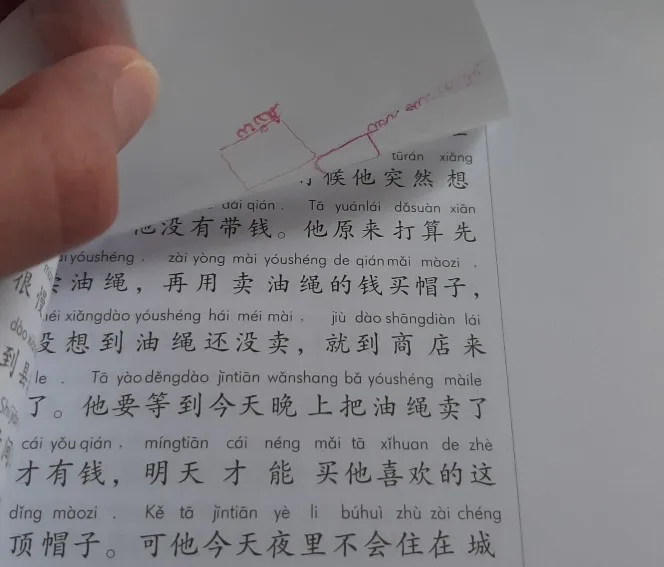 tūrán xiǎng
候他突然想
qián . Tā yuánlái dǎsuàn xiān
他没有带钱。他原来打算先
yóushéng . zài yòng mài yóushéng de qián mǎi màozi .
卖油绳，再用卖油绳的钱买帽子，
méi xiǎngdào yóushéng hái méi mài , jiù dào shāngdiàn lái
没想到油绳还没卖，就到商店来
le . Tā yào děngdào jīntiān wǎnshang bǎ yóushéng màile
了。他要等到今天晚上把油绳卖了
cái yǒu qián , míngtiān cái néng mǎi tā xǐhuan de zhè
才有钱，明天才能买他喜欢的这
dǐng màozi . Kě tā jīntiān yè li búhuì zhù zài chéng
顶帽子。可他今天夜里不会住在城